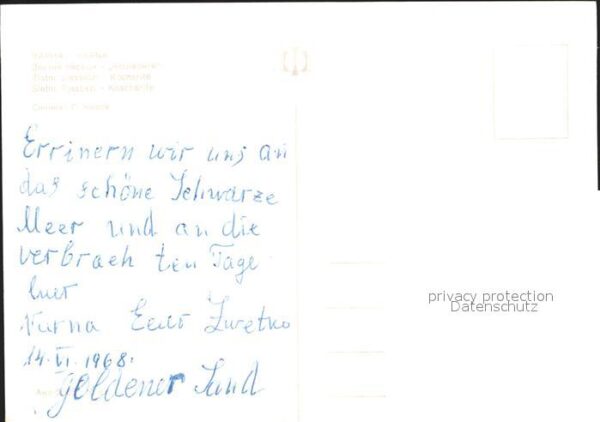 Errinern wir uns an
das schöne Schwarze
Meer und an die
verbrach ten Tage
hier
Varna Euer Zwetko
14. VI. 1968.
goldener Sand
privacy protection
Datenschutz